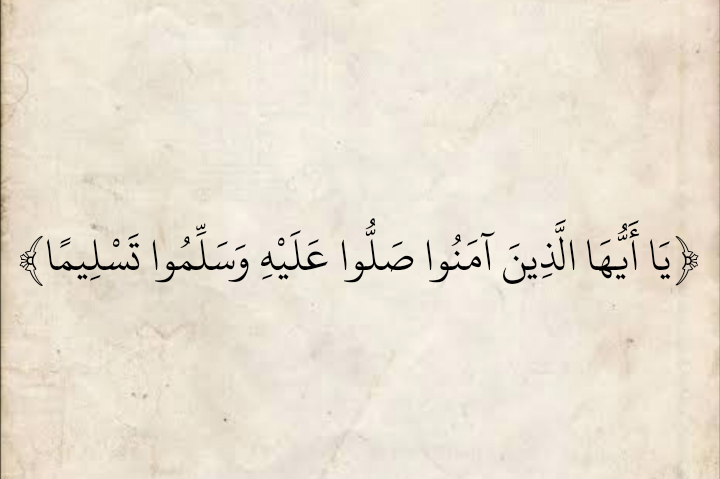 ﴿يَا أَيُّهَا الَّذِينَ آمَنُوا صَلُّوا عَلَيْهِ وَسَلِّمُوا تَسْلِيمًا﴾